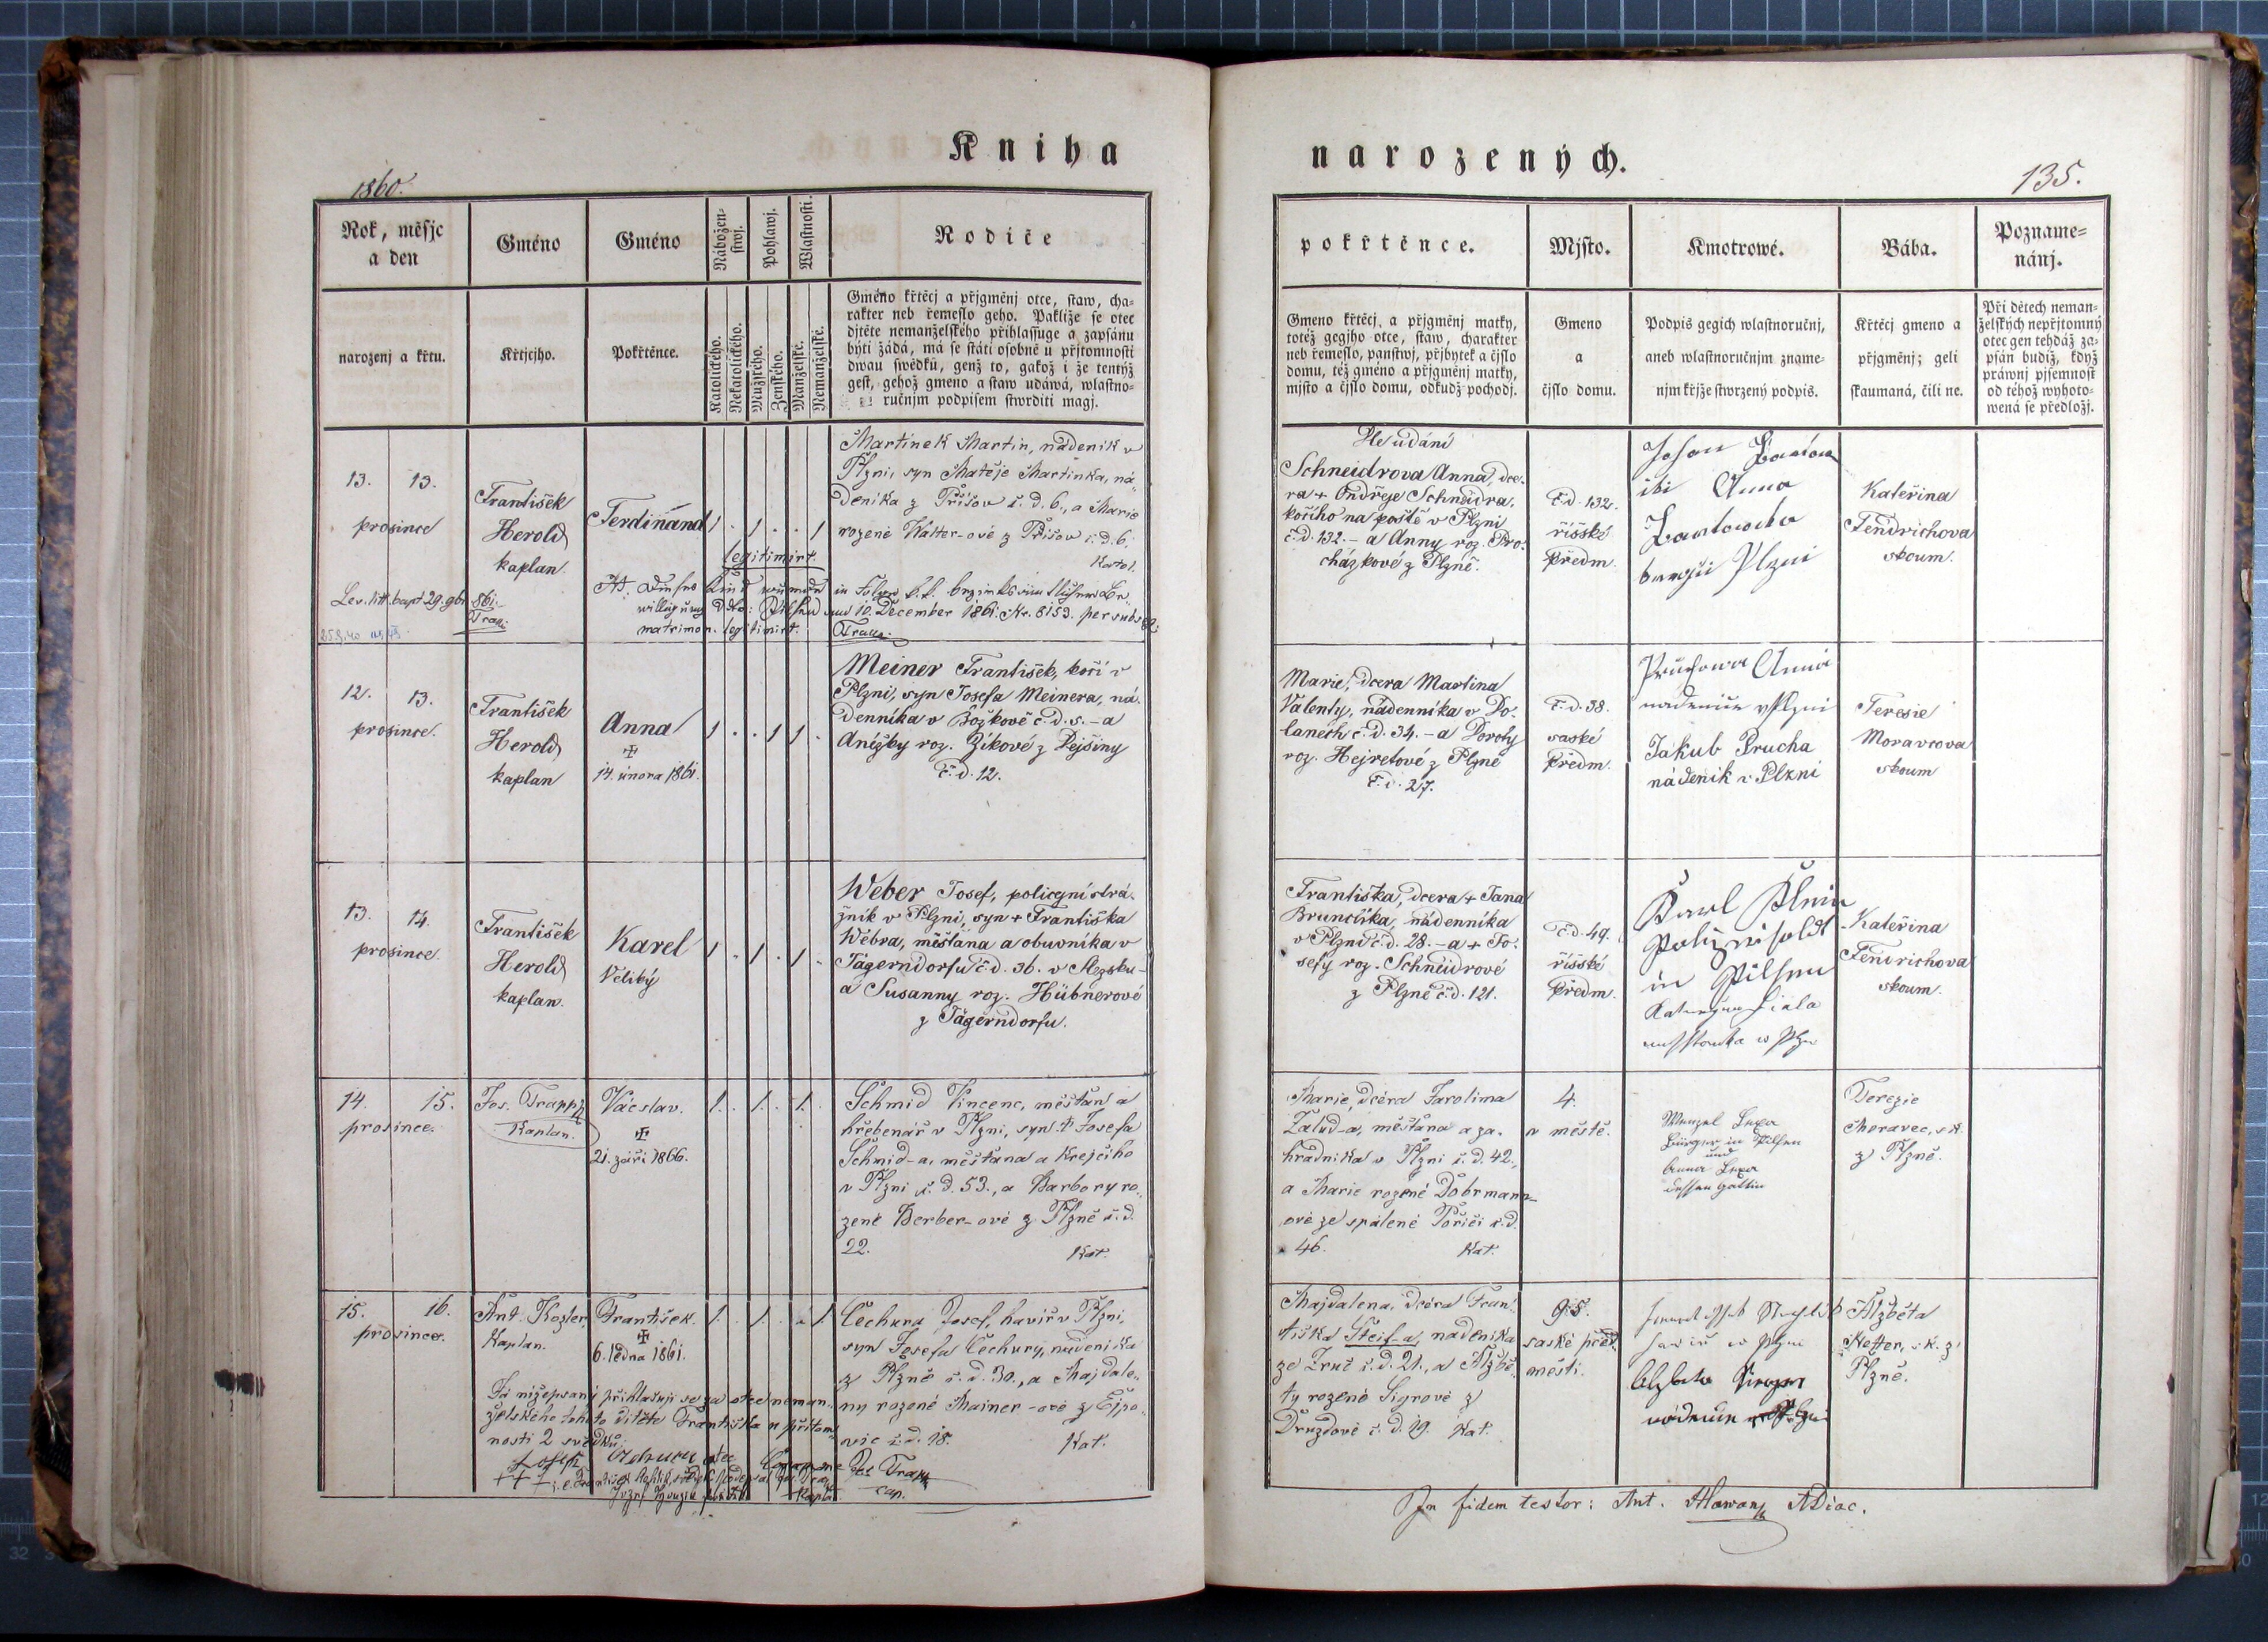 Kniha
narozených.
1860.
135.
Rok, měsjc
a den
Gméno
Gméno
Nábožen-
stwj.
Pohlawj.
Wlastnosti.
Rodiče
pokřtěnce.
Mjsto.
Kmotrowé.
Bába.
Pozname-
nánj.
narozenj a křtu.
Křtjcjho.
Pokřtěnce.
Katolického.
Nekatolického.
Mužského.
Ženského.
Manželské.
Nemanželské.
Gméno křtěcj a přjgměnj otce, staw, cha-
rakter neb řemeslo geho. Pakliže se otec
djtěte nemanželského přihlassuge a zapsánu
býti žádá, má se státi osobně u přjtomnosti
dwau swědků, genž to, gakož i že tentýž
gest, gehož gmeno a staw udáwá, wlastno-
ručnjm podpisem stwrditi magj.
Gmeno křtěcj, a přjgměnj matky,
totéž gegjho otce, staw, charakter
neb řemeslo, panstwj, přjbytek a čjslo
domu, též gméno a přjgměnj matky,
mjsto a čjslo domu, odkudž pochodj.
Gmeno
a
čjslo domu.
Podpis gegich wlastnoručnj,
aneb wlastnoručnjm zname-
njm křjže stwrzený podpis.
Křtěcj gmeno a
přjgměnj; geli
skaumaná, čili ne.
Při dětech neman-
želských nepřjtomný
otec gen tehdáž za-
psán budiž, když
práwnj pjsemnost
od téhož wyhoto-
wená se předložj.
13. 13.
prosince
František
Herold
kaplan
Ferdinand
1 . 1 . . 1
legitimirt.
Martinek Martin, nádeník v
Plzni, syn Matěje Martinka, ná-
deníka z Příšov č. d. 6., a Marie
rozené Walter-ové z Příšov č. d. 6.
Katol.
Lev. litt. bapt. 29. 9br. 861.
Trapp
10. December 1861. Nr. 8153. per subseq.
matrimon. legitimirt.
Dle udání
Schneidrova Anna, dce-
ra + Ondřeje Schneidra,
kočího na poště v Plzni
č. d. 132. - a Anny roz. Pro-
cházkové z Plzně.
č. d. 132.
říšské
předm.
Anna
Plzni
Kateřina
Fendrichova
skoum.
12. 13.
prosince.
František
Herold
kaplan
Anna
✠
14. února 1861.
1 . . 1 1 .
Meiner František, kočí v
Plzni, syn Josefa Meinera, ná-
denníka v Božkově č. d. 5. - a
Anížky roz. Zíkové z Dejšiny
č. d. 12.
Marie, dcera Martina
Valenty, nádenníka v Do-
lanech č. d. 34. - a Doroty
roz. Hejretové z Plzně
č. d. 27.
č. d. 38.
saské
předm.
Anna
Jakub Prucha
nádeník v Plzni
Teresie
Moravcova
skoum
13. 14.
prosince.
František
Herold
kaplan.
Karel
Veliký
1 . 1 . 1 .
Weber Josef, policyní strá-
žník v Plzni, syn + Františka
Wébra, měšťana a obuvníka v
Jägerndorfu č. d. 36. v Slezsku -
a Susanny roz. Hübnerové
z Jägerndorfu.
Františka, dcera + Jana
Brunclíka, nádenníka
v Plzni č. d. 28. - a + Jo-
sefy roz. Schneidrové
z Plzně č. d. 121.
č. d. 49.
říšské
předm.
Karl
in Pilsen
Kateřina
Fendrichova
skoum.
14. 15.
prosince.
Jos. Trapp
Kaplan.
Václav.
✠
21. září 1866.
1. . 1. . 1. .
Schmid Vincenc, měšťan a
hřebenář v Plzni, syn + Josefa
Schmid-a, měšťana a krejčího
v Plzni č. d. 53., a Barbory ro-
zené Berber-ové z Plzně č. d.
22. Kat.
Marie, dcera Jarolíma
Žalud-a, měšťana a za-
hradníka v Plzni č. d. 42.,
a Marie rozené Dobrmann-
ové ze spálené Poříčí č. d.
46. Kat.
4.
v městě.
Wenzel Lexa
Bürger in Pilsen
und
Anna Lexa
dessen Gattin
Terezie
Moravec, sk.
z Plzně.
15. 16.
prosince.
Ant. Kozler,
Kaplan.
František.
✠
6. ledna 1861.
1. . 1. . . 1
Čechura Josef, havíř v Plzni,
syn Josefa Čechury, nádeníka
z Plzně č. d. 30., a Majdale-
ny rozené Mainer-ové z Ejpo-
vic č. d. 18. Kat.
Já nížepsaný přihlašuji se za otce neman-
želského tohoto dítěte Františka u přítom-
nosti 2 svědků.
Josef Čechura otec
Jos. Trapp
cap.
Majdalena, dcera Fran-
tiška Steif-a, nádeníka
ze Zruč č. d. 21., a Alžbě-
ty rozené Sigrové z
Druzdové č. d. 19. Kat.
95.
saské před-
městí.
Alžběta
Ketter, sk. z
Plzně.
In fidem testor: Ant. Hawan ADiac.